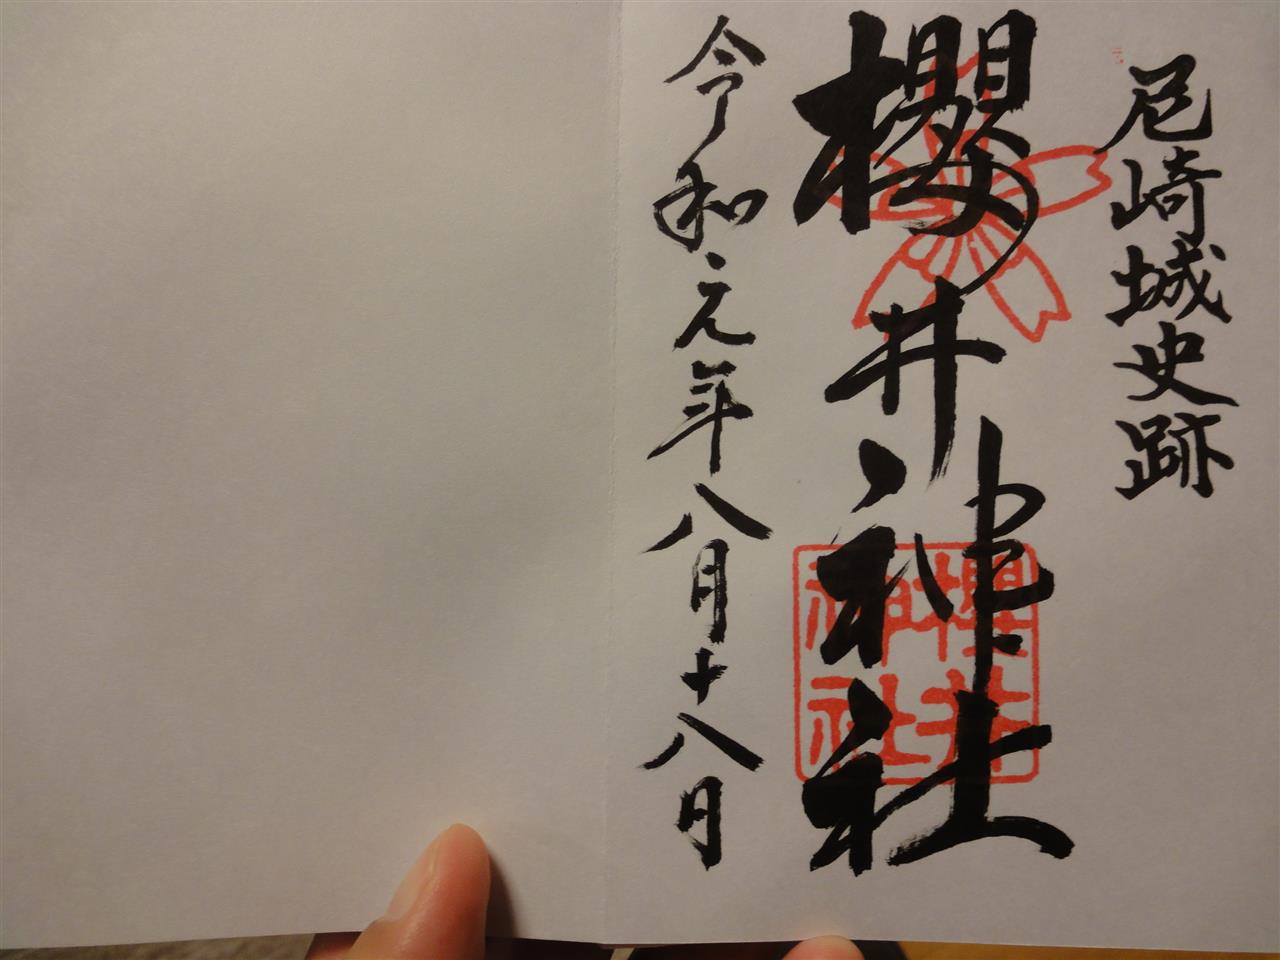 尼崎城史跡
櫻井神社
櫻井
神社
令和元年八月十八日